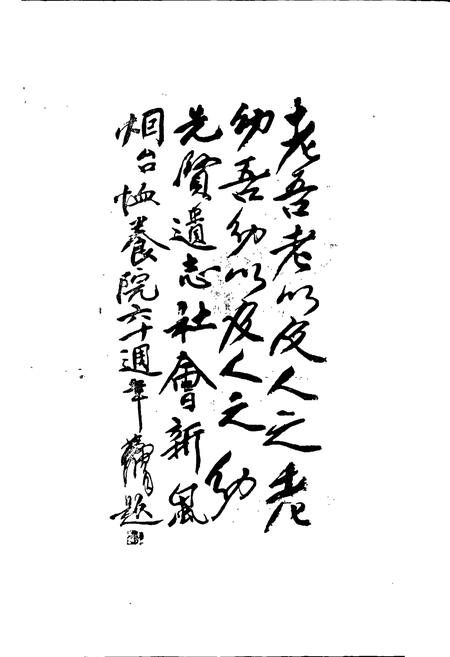 老吾老以及人之老
幼吾幼以及人之幼
先賢遺志社會新風
烟台恤養院六十週年 題